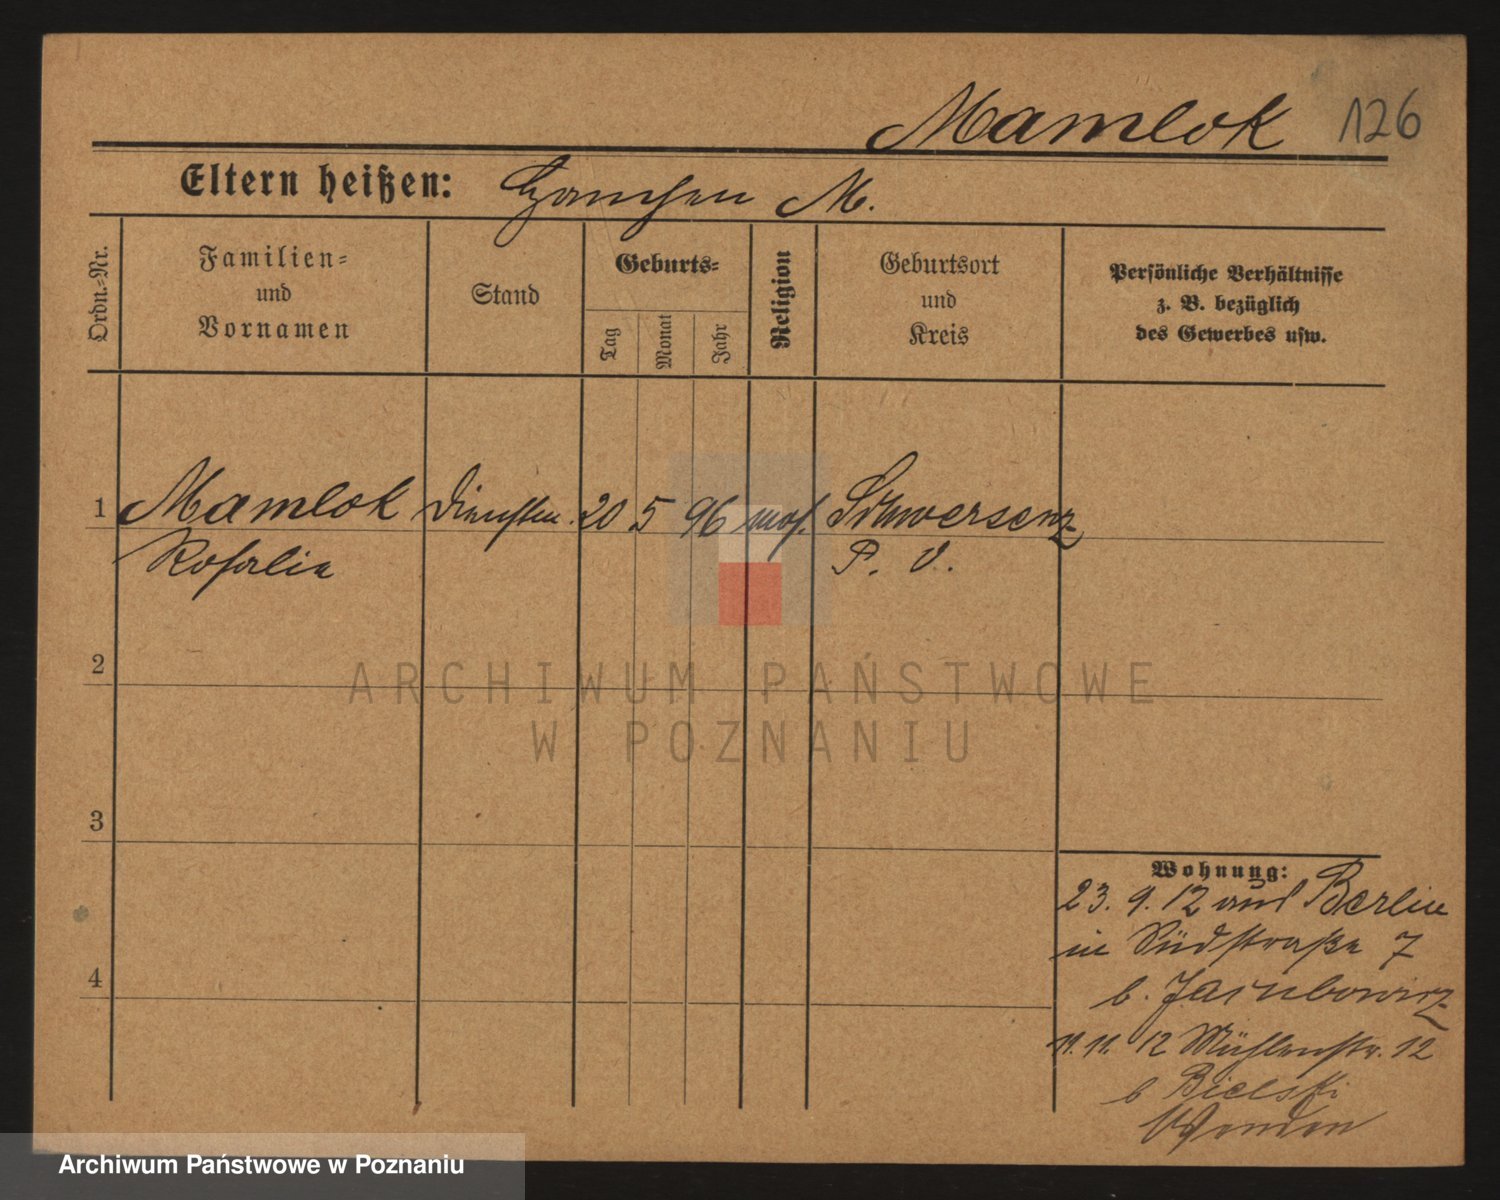 Mamlok 126
Eltern heißen: M.
Ordn.-Nr.
Familien-
und
Vornamen
Stand
Geburts-
Tag
Monat
Jahr
Religion
Geburtsort
und
Kreis
Persönliche Verhältnisse
z. B. bezüglich
des Gewerbes usw.
1 Mamlok 20 5 96 mos. Schwersenz
Rosalie P. O.
2
3
4
Wohnung:
23. 9. 12 aus Berlin
in Südstraße 7
b.
11. 11. 12 Mühlenstr. 12
b Bielski
Wenden
ARCHIWUM PAŃSTWOWE
W POZNANIU
Archiwum Państwowe w Poznaniu